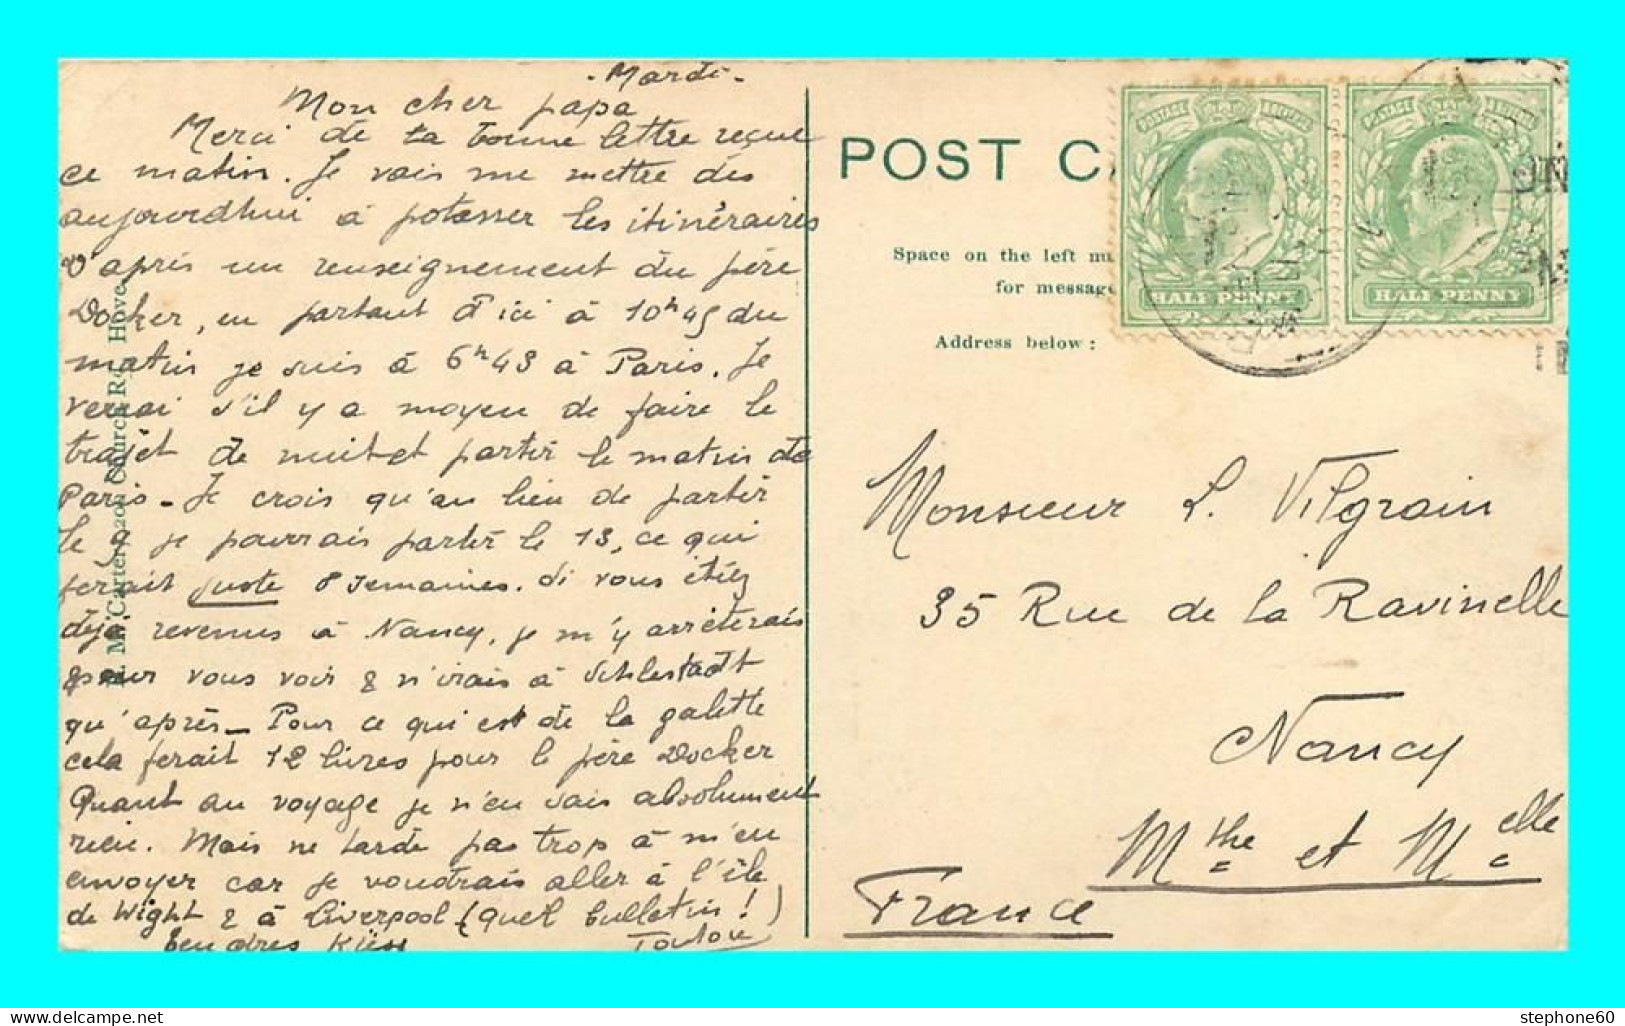 - Mardi -
Mon cher papa
Merci de ta bonne lettre reçue
ce matin. Je vais me mettre dès
aujourdhui à potasser les itinéraires
D'après un renseignement du père
Docker, en partant d'ici à 10h45 du
matin je suis à 6h43 à Paris. Je
verrai s'il y a moyen de faire le
trajet de nuit et partir le matin de
Paris - Je crois qu'au lieu de partir
le 9 je pourrais partir le 13, ce qui
ferait juste 8 semaines. Si vous étiez
déjà revenus à Nancy, je m'y arrêterais
pour vous voir & n'irais à Schlestadt
qu'après - Pour ce qui est de la galette
cela ferait 12 livres pour le père Docker
Quant au voyage je n'en sais absolument
rien. Mais ne tarde pas trop à m'en
envoyer car je voudrais aller à l'île
de Wight & à Liverpool (quel bulletin!)
Tendres Kiss
Toulou
H. M. Carter, Church Rd. Hove
POST C
Space on the left mu
for message
Address below:
POSTAGE REVENUE
HALF PENNY
POSTAGE REVENUE
HALF PENNY
Monsieur L. Vilgrain
35 Rue de la Ravinelle
Nancy
Mthe et Melle
France
stephone60